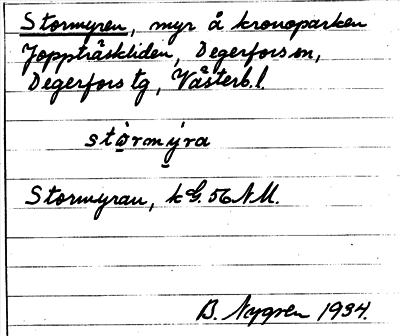 Stormyren, myr å kronoparken
Joppträskliden, Degerfors sn,
Degerfors tg, Västerb.l.
stòrmýra
Stormyran, kG. 56 NM.
B. Nygren 1934.